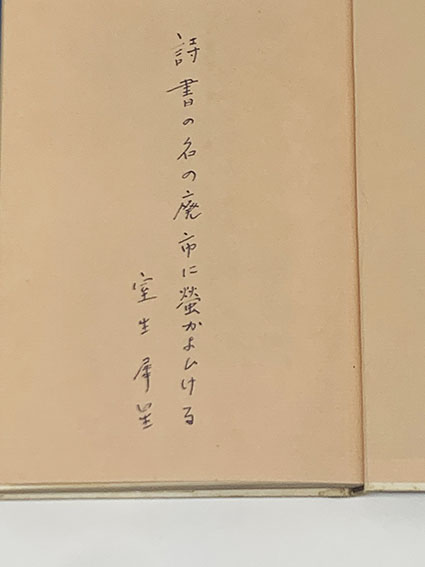 詩書の名の廃市に螢かよひける
室生犀星